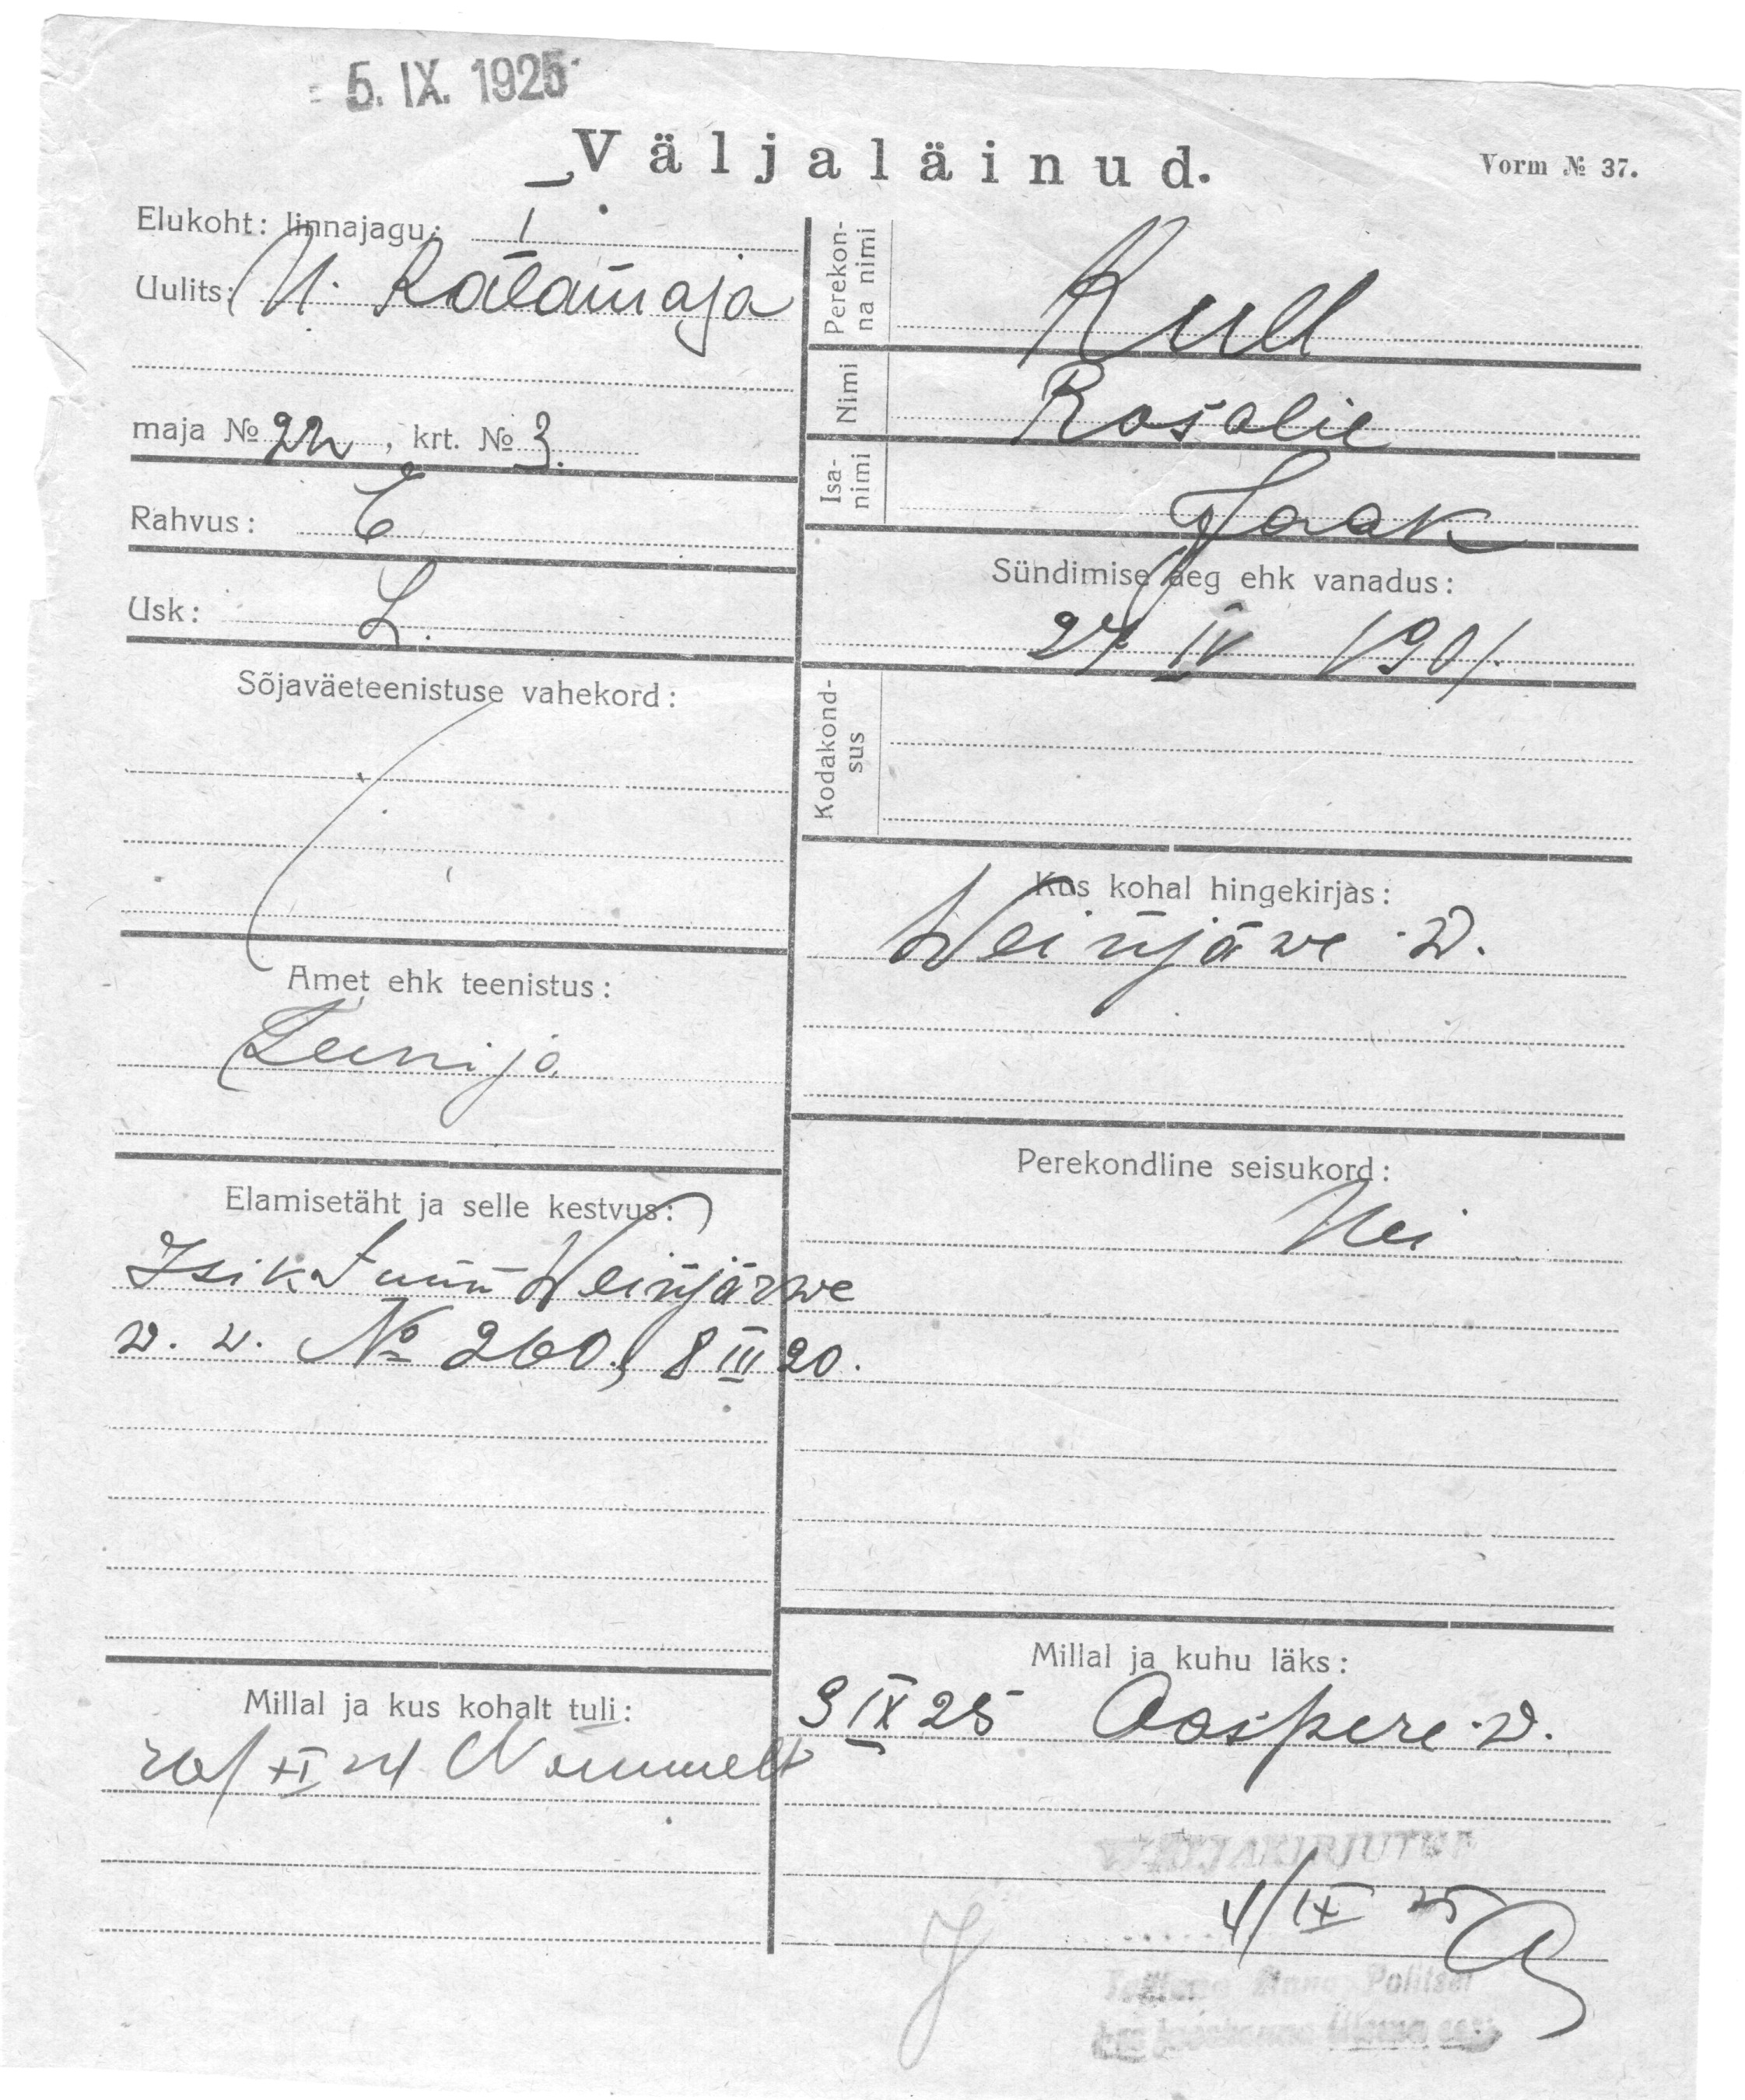 5. IX. 1925
Väljaläinud.
Vorm № 37.
Elukoht: linnajagu: I
Uulits: U. Kalamaja
maja № 22, krt. № 3.
Rahvus: E
Usk: L.
Sõjaväeteenistuse vahekord:
Amet ehk teenistus:
Teenija
Elamisetäht ja selle kestvus:
Isikt unn Weinjärwe
w. w. № 260, 8 III 20.
Millal ja kus kohalt tuli:
XI 24 Nõmmelt
Perekonna nimi
Kull
Nimi
Rosalie
Isanimi
Jaak
Sündimise aeg ehk vanadus:
27 IV 1901.
Kodakondsus
Kus kohal hingekirjas:
Weinjärwe w.
Perekondline seisukord:
Nei
Millal ja kuhu läks:
3 IX 25 Aaspere w.
VÄLJAKIRJUTUD
4/IX 25
Tallinna linna Politsei
jaoskonna ülema